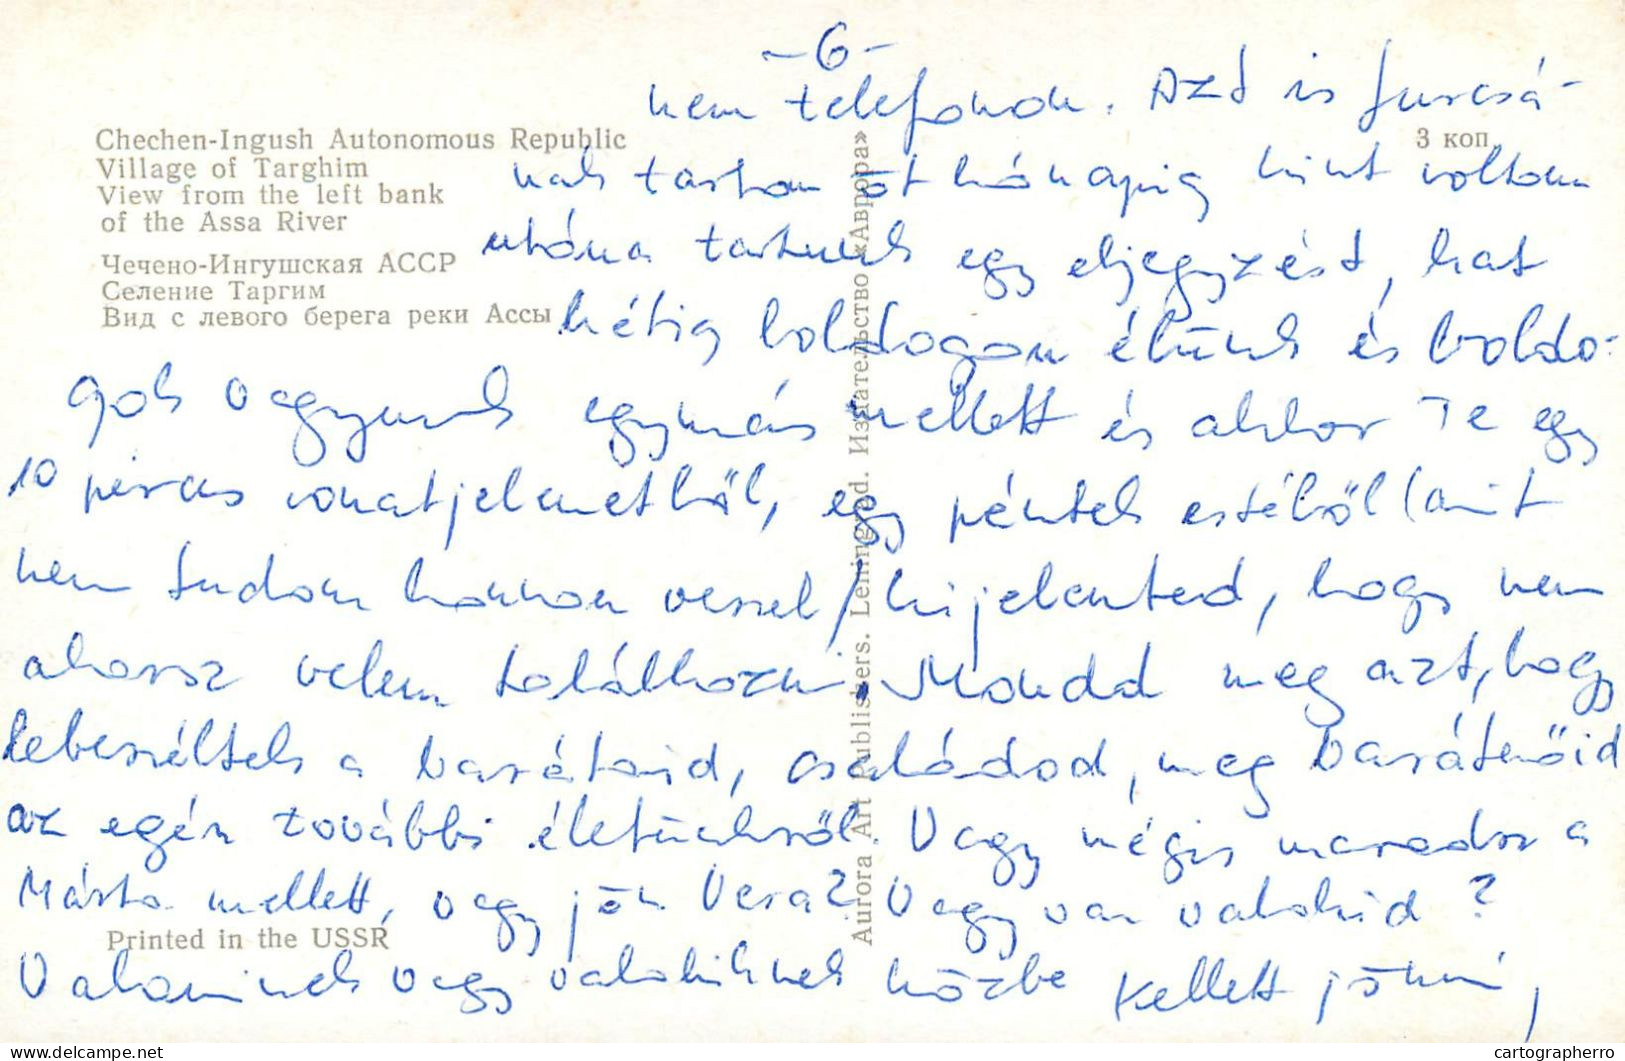 -6-
nem telefonon. Azt is furcsá-
Chechen-Ingush Autonomous Republic
Village of Targhim
View from the left bank
of the Assa River
3 коп.
nak tartom öt hónapig kint voltam
utána tartunk egy eljegyzést, hat
Чечено-Ингушская АССР
Селение Таргим
Вид с левого берега реки Ассы
hétig boldogan élünk és boldo-
gok vagyunk egymás mellett és akkor Te egy
10 perces vonatjelenetből, egy péntek estéből (amit
nem tudom honnan veszel) kijelented, hogy nem
akarsz velem találkozni. Mondd meg azt, hogy
lebeszéltek a barátaid, családod, meg barátnőid
az egész további életünkről. Vagy mégis maradsz a
Márta mellett, vagy jön Vera? Vagy van valakid?
Printed in the USSR
Valaminek vagy valakiknek közbe kellett jönni,
Aurora Art Publishers. Leningrad. Издательство «Аврора»
cartographerro